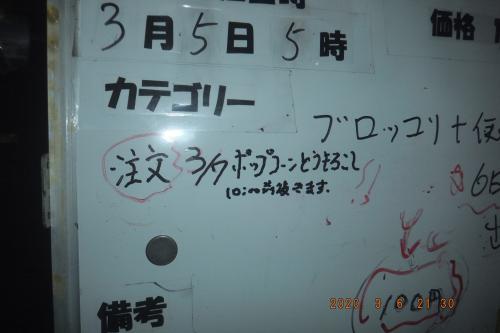 価格
3月5日5時
カテゴリー
ブロッコリ+
注文 3/7 ポップコーンとうもろこし
10:00前後きます。
100円
備考
2020 3 6 21 30